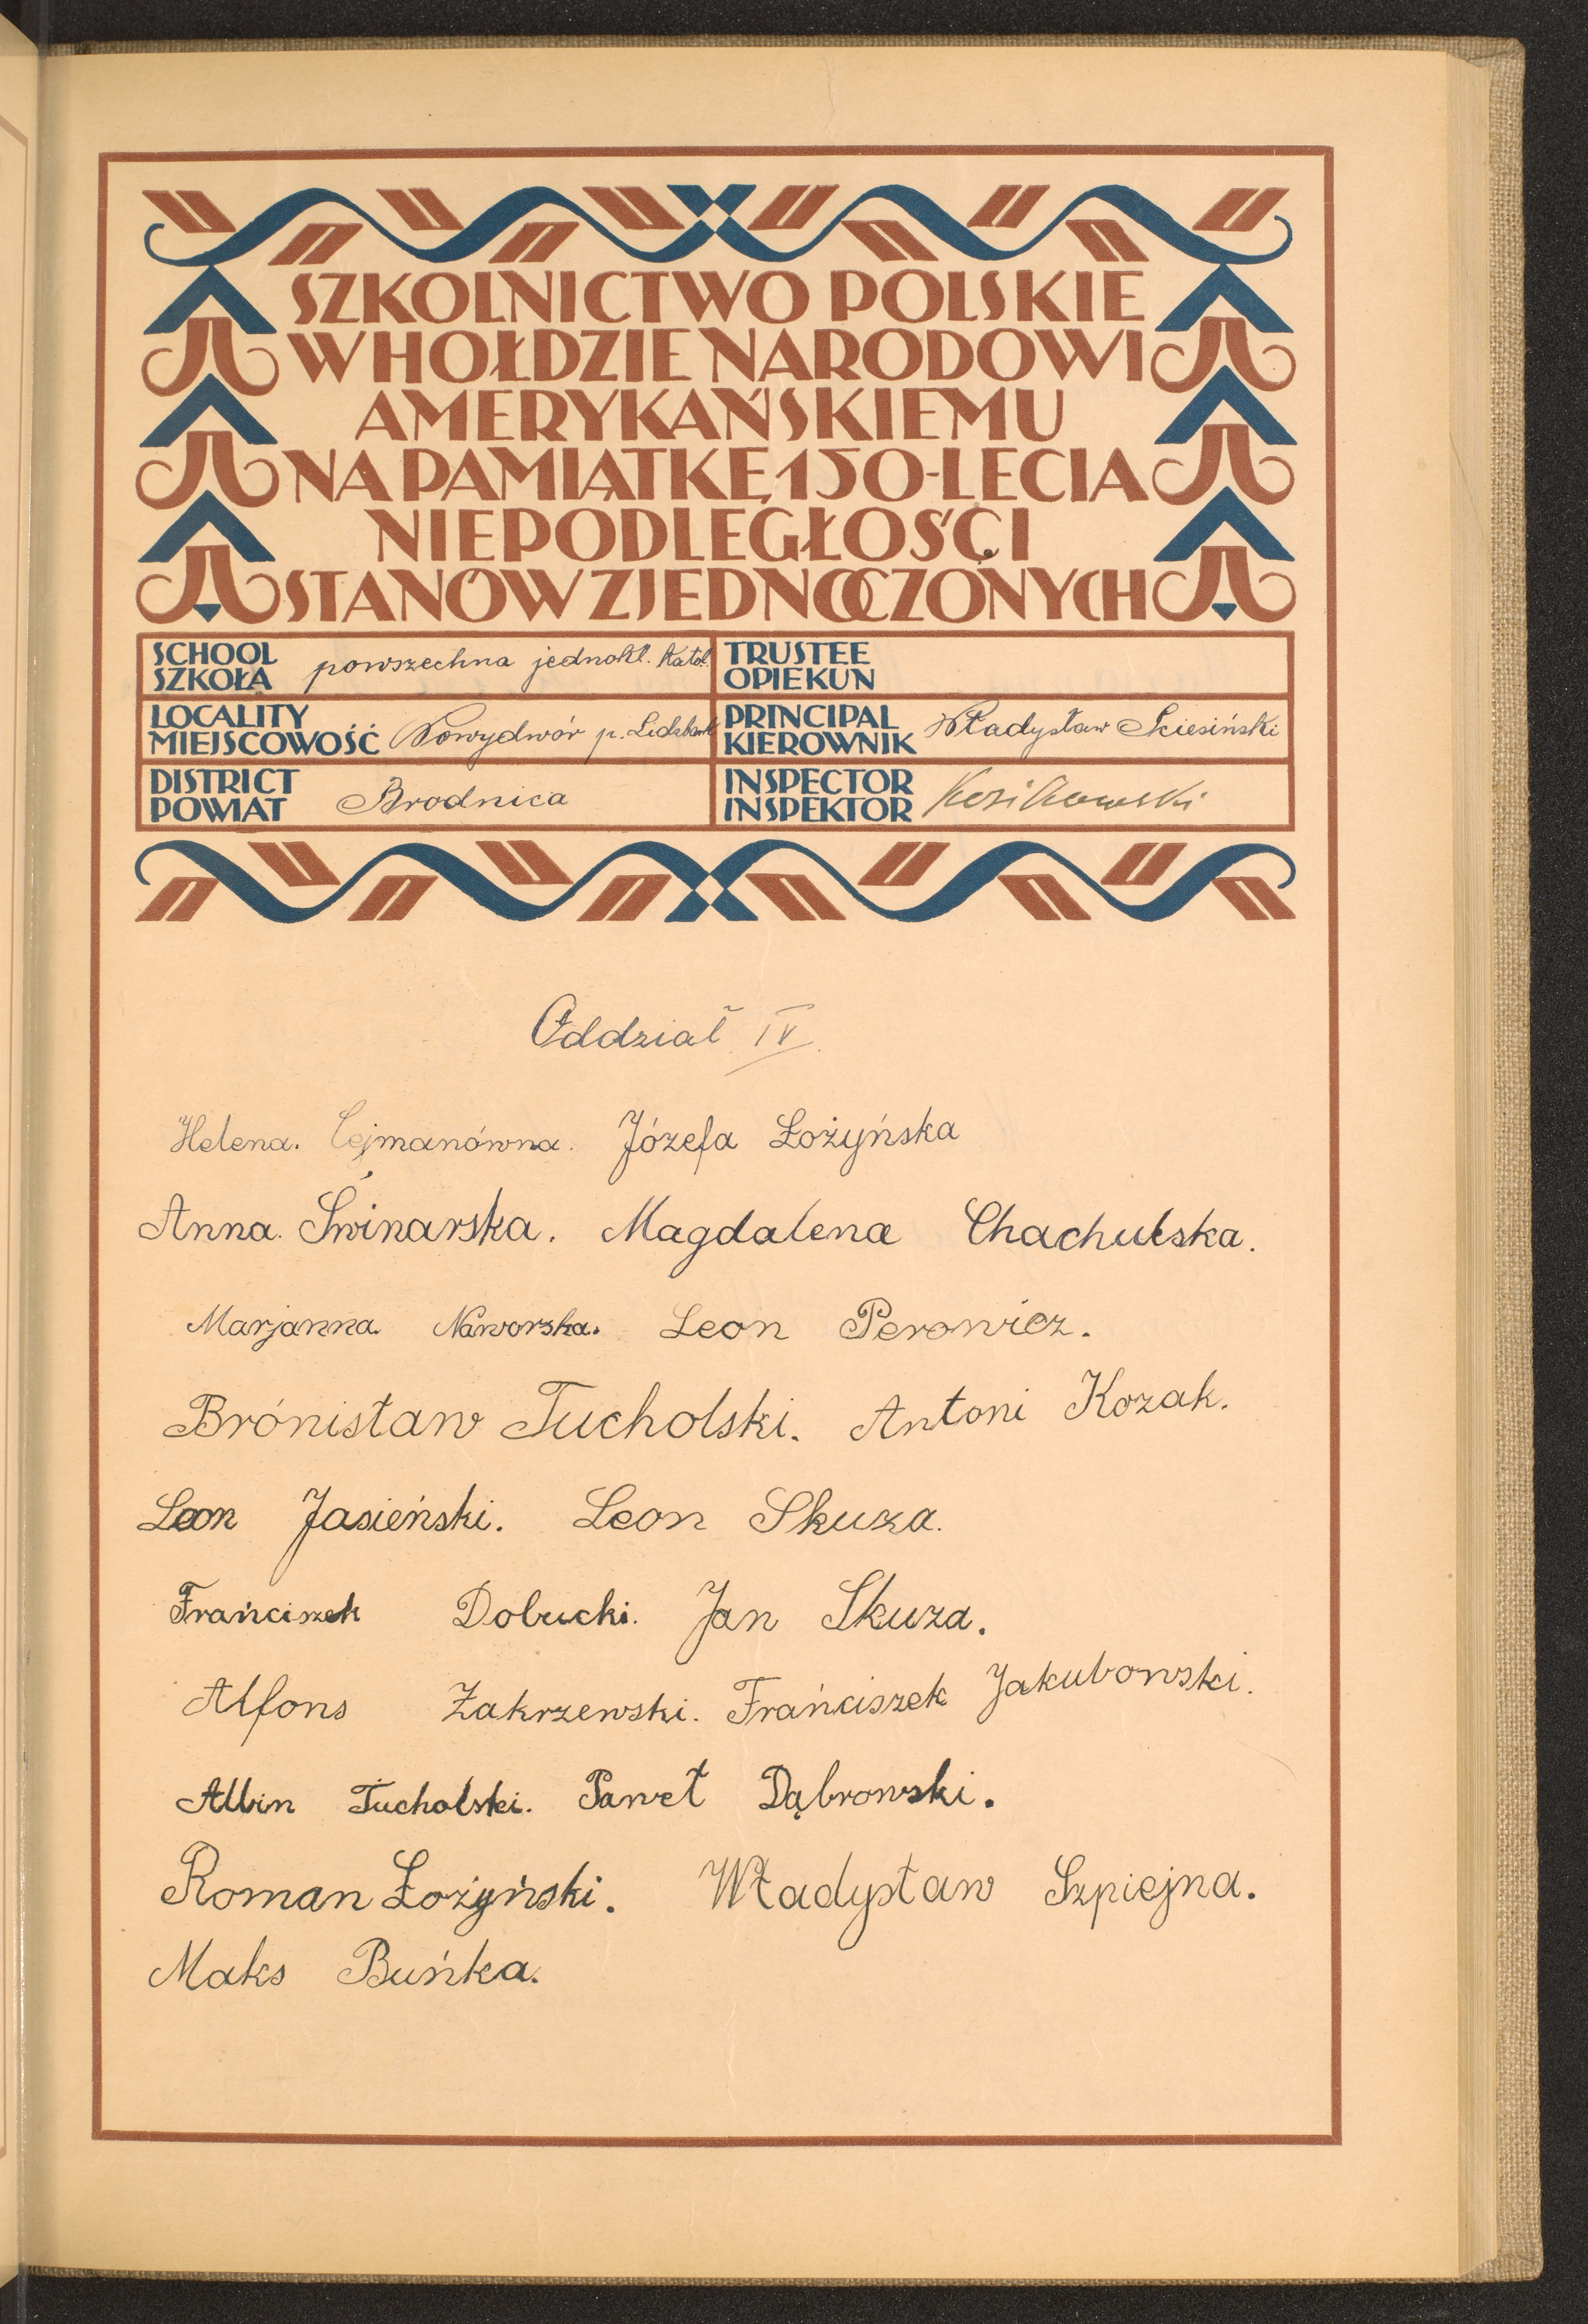 SZKOLNICTWO POLSKIE
W HOŁDZIE NARODOWI
AMERYKAŃSKIEMU
NA PAMIĄTKĘ 150-LECIA
NIEPODLEGŁOŚCI
STANÓW ZJEDNOCZONYCH
SCHOOL
SZKOŁA powszechna jednokl. Katol.
TRUSTEE
OPIEKUN
LOCALITY
MIEJSCOWOŚĆ Nowydwór p. Lidzbark
PRINCIPAL
KIEROWNIK Władysław Skiesiński
DISTRICT
POWIAT Brodnica
INSPECTOR
INSPEKTOR
Oddział IV.
Helena. Cejmanówna. Józefa Łożyńska
Anna. Świnarska. Magdalena Chachulska.
Marjanna. Naworska. Leon Perowicz.
Brónisław Tucholski. Antoni Kozak.
Leon Jasieński. Leon Skuza.
Frańciszek Dobucki. Jan Skuza.
Alfons Zakrzewski. Frańciszek Jakubowski.
Albin Tucholski. Paweł Dąbrowski.
Roman Łożyński. Władysław Szpiejna.
Maks Buńka.